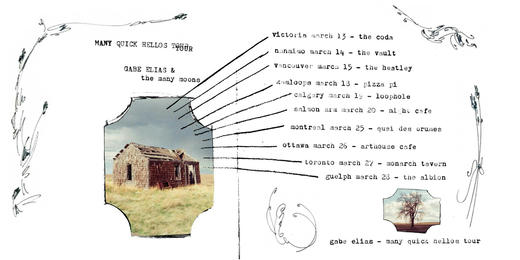 MANY QUICK HELLOS TOUR
TOUR
GABE ELIAS &
the many moons
victoria march 13 - the coda
nanaimo march 14 - the vault
vancouver march 15 - the heatley
kamloops march 18 - pizza pi
calgary march 19 - loophole
salmon arm march 20 - cafe
montreal march 25 - quai des brumes
ottawa march 26 - arthouse cafe
toronto march 27 - monarch tavern
guelph march 28 - the albion
gabe elias - many quick hellos tour